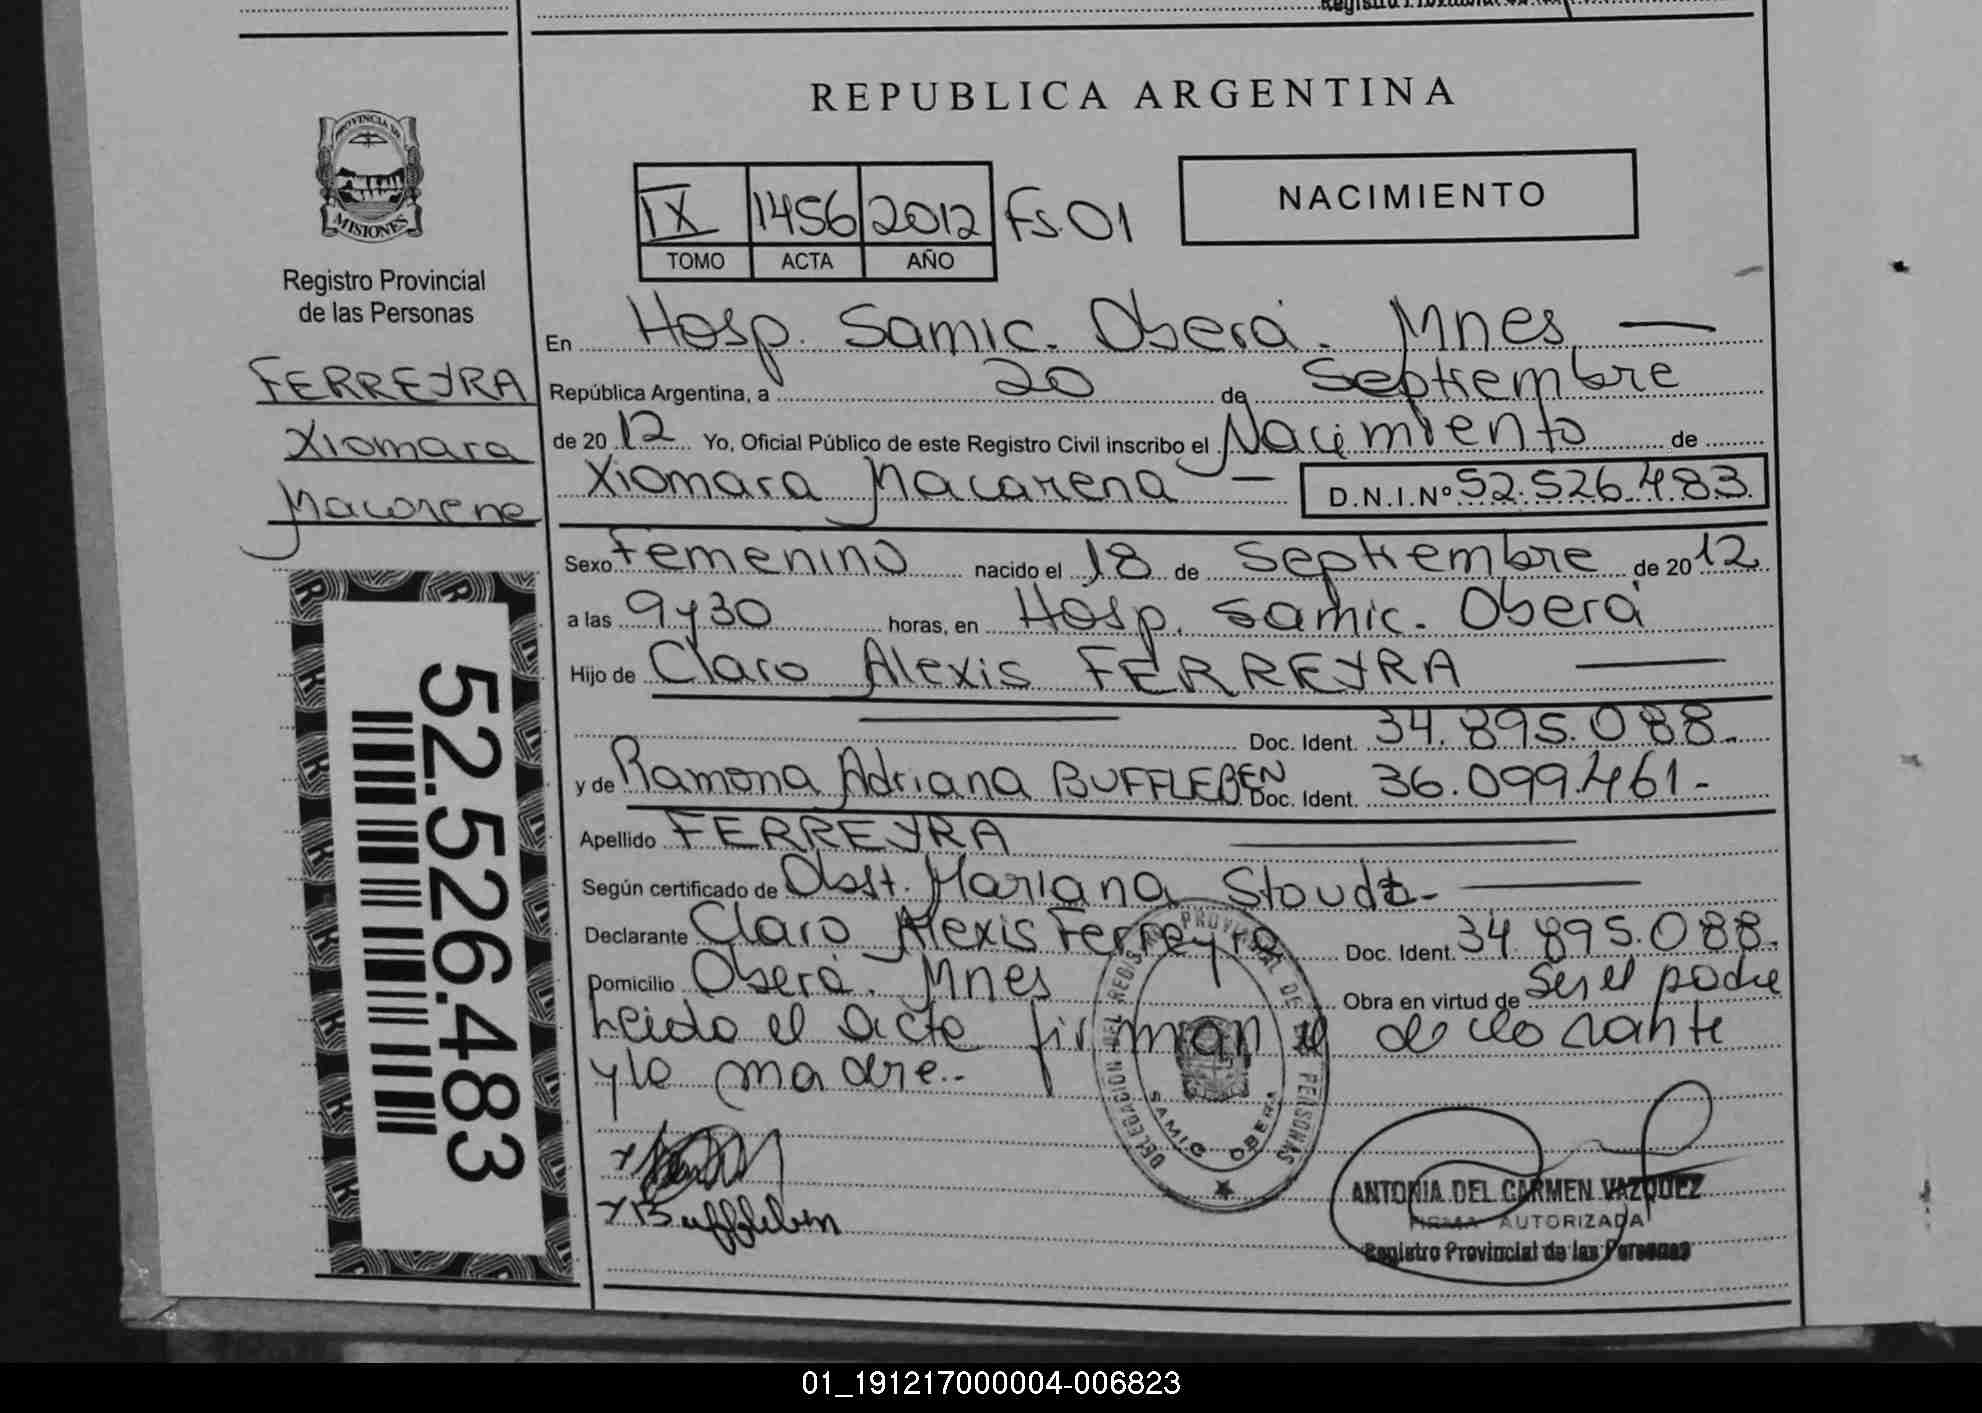 REPUBLICA ARGENTINA
PROVINCIA DE
MISIONES
Registro Provincial
de las Personas
FERREYRA
Xiomara
Macarena
52.526.483
IX 1456 2012 Fs.01
TOMO ACTA AÑO
NACIMIENTO
En Hosp. Samic. Oberá. Mnes
República Argentina, a 20 de Septiembre
de 2012 Yo, Oficial Público de este Registro Civil inscribo el Nacimiento de
Xiomara Macarena - D.N.I.Nº 52.526.483.
Sexo Femenino nacido el 18 de Septiembre de 2012.
a las 9 y 30 horas, en Hosp. Samic. Oberá
Hijo de Claro Alexis FERREYRA
Doc. Ident. 34.895.088.
y de Ramona Adriana BUFFLEBEN Doc. Ident. 36.099.461.-
Apellido FERREYRA
Según certificado de Obst. Mariana Stoudt-
Declarante Claro Alexis Ferreyra Doc. Ident. 34.895.088.
Domicilio Oberá. Mnes Obra en virtud de ser el padre
Leido el acta firman el declarante
y la madre.-
DELEGACION DEL REGISTRO PROVINCIAL DE PERSONAS
SAMIC OBERA
x
x Buffleben
ANTONIA DEL CARMEN VAZQUEZ
FIRMA AUTORIZADA
Registro Provincial de las Personas
01_191217000004-006823